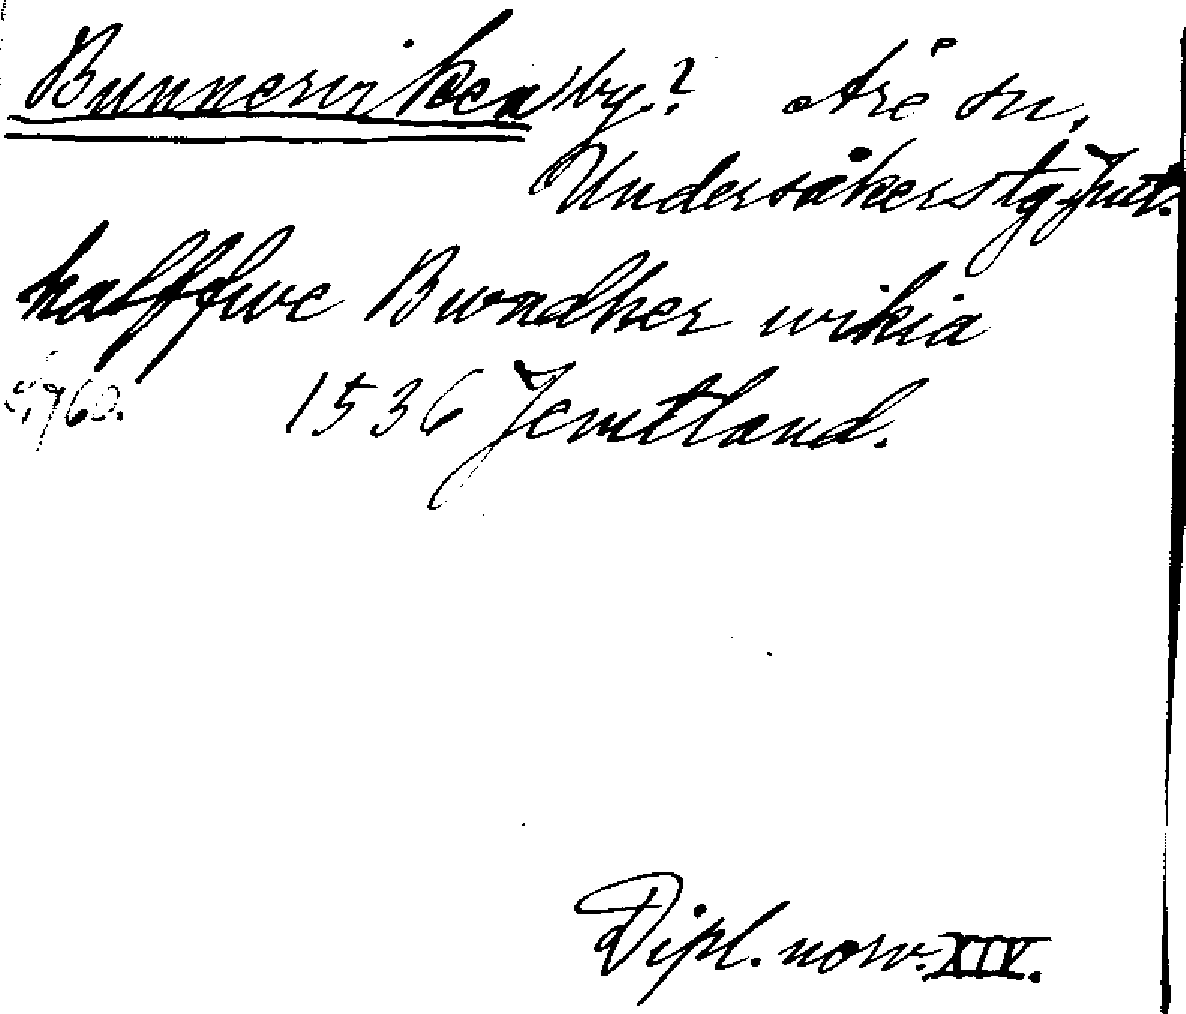 Bunnerviken by.? Åre sn,
Undersåkers tg. Jmt.
halffwe Bwndher wikia
s. 760. 1536 Jemtland.
Dipl. norv. XIV.